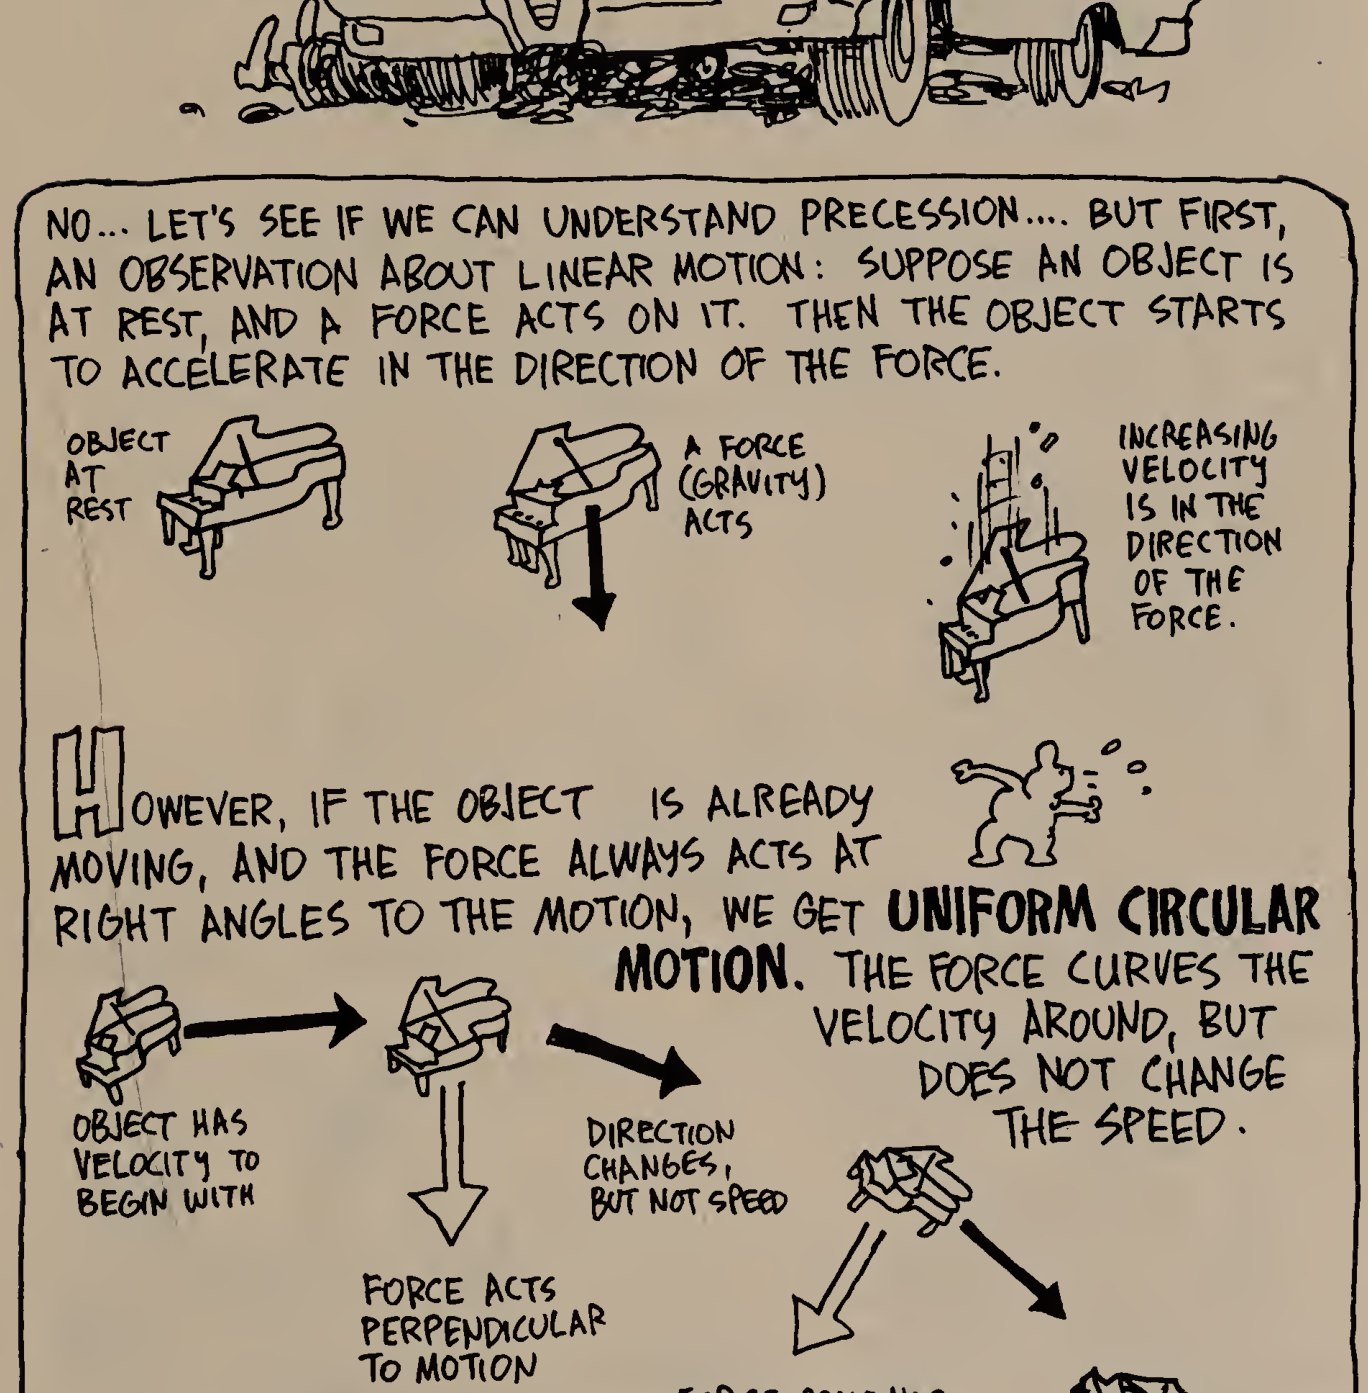 NO... LET'S SEE IF WE CAN UNDERSTAND PRECESSION.... BUT FIRST,
AN OBSERVATION ABOUT LINEAR MOTION: SUPPOSE AN OBJECT IS
AT REST, AND A FORCE ACTS ON IT. THEN THE OBJECT STARTS
TO ACCELERATE IN THE DIRECTION OF THE FORCE.
OBJECT
AT
REST
A FORCE
(GRAVITY)
ACTS
INCREASING
VELOCITY
IS IN THE
DIRECTION
OF THE
FORCE.
HOWEVER, IF THE OBJECT IS ALREADY
MOVING, AND THE FORCE ALWAYS ACTS AT
RIGHT ANGLES TO THE MOTION, WE GET UNIFORM CIRCULAR
MOTION. THE FORCE CURVES THE
VELOCITY AROUND, BUT
DOES NOT CHANGE
THE SPEED.
OBJECT HAS
VELOCITY TO
BEGIN WITH
FORCE ACTS
PERPENDICULAR
TO MOTION
DIRECTION
CHANGES,
BUT NOT SPEED